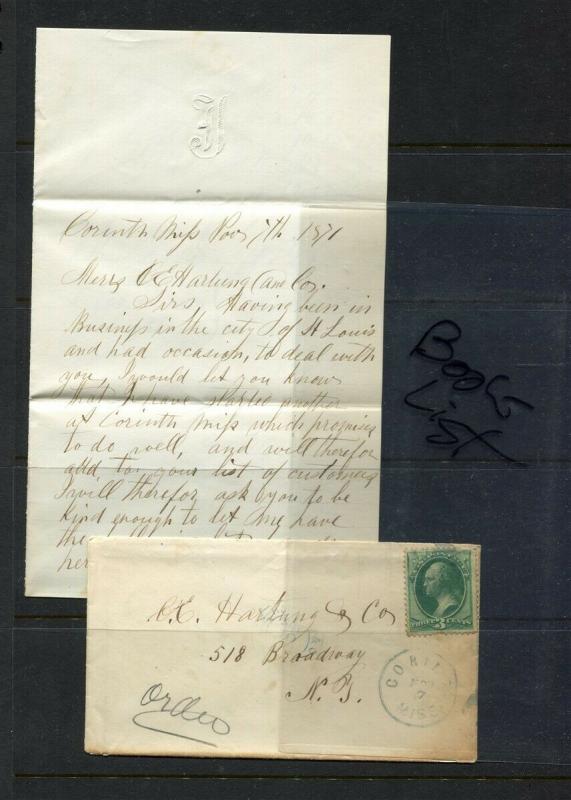 J
Corinth Miss Nov 7th 1871
Messrs C E Hartung and Co.
Sirs, Having been in
Business in the city of St Louis
and had occasion, to deal with
you, I would let you know
that I have started another
at Corinth Miss which promises
to do well, and will therefor
add to your list of customers
I will therefor ask you to be
kind enough to let me have
the
her
C.E. Hartung & Co
518 Broadway
N.Y.
Order
THREE 3 CENTS
CORINT
NOV
7
MISS
Book
List